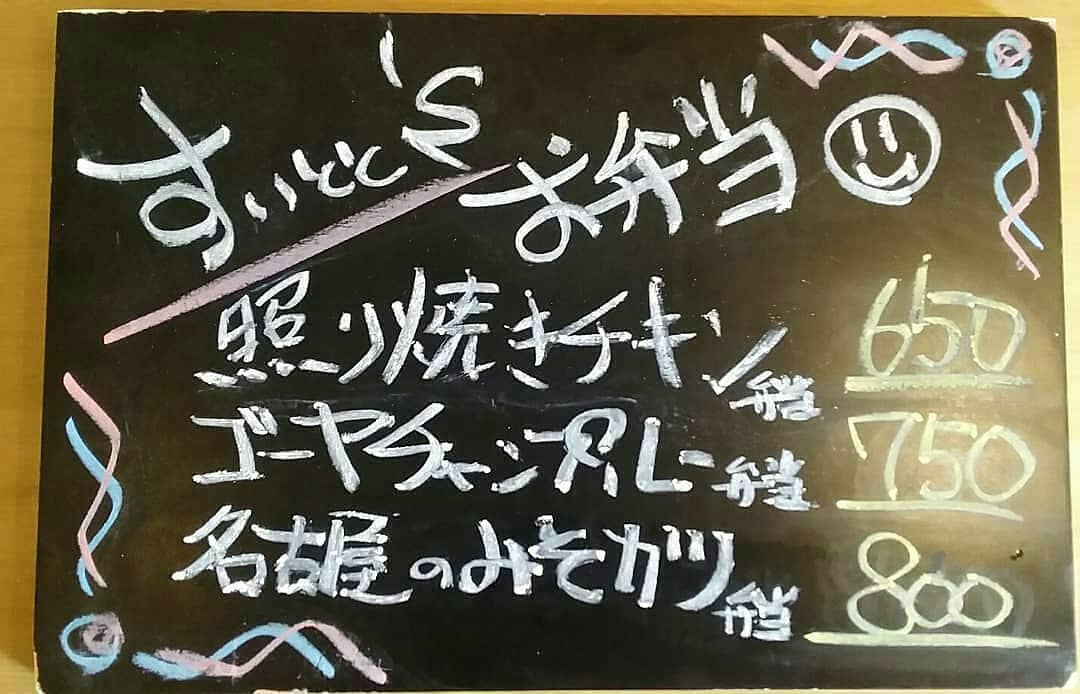 すいとと's お弁当
照り焼きチキン弁当 650
ゴーヤチャンプルー弁当 750
名古屋のみそカツ弁当 800